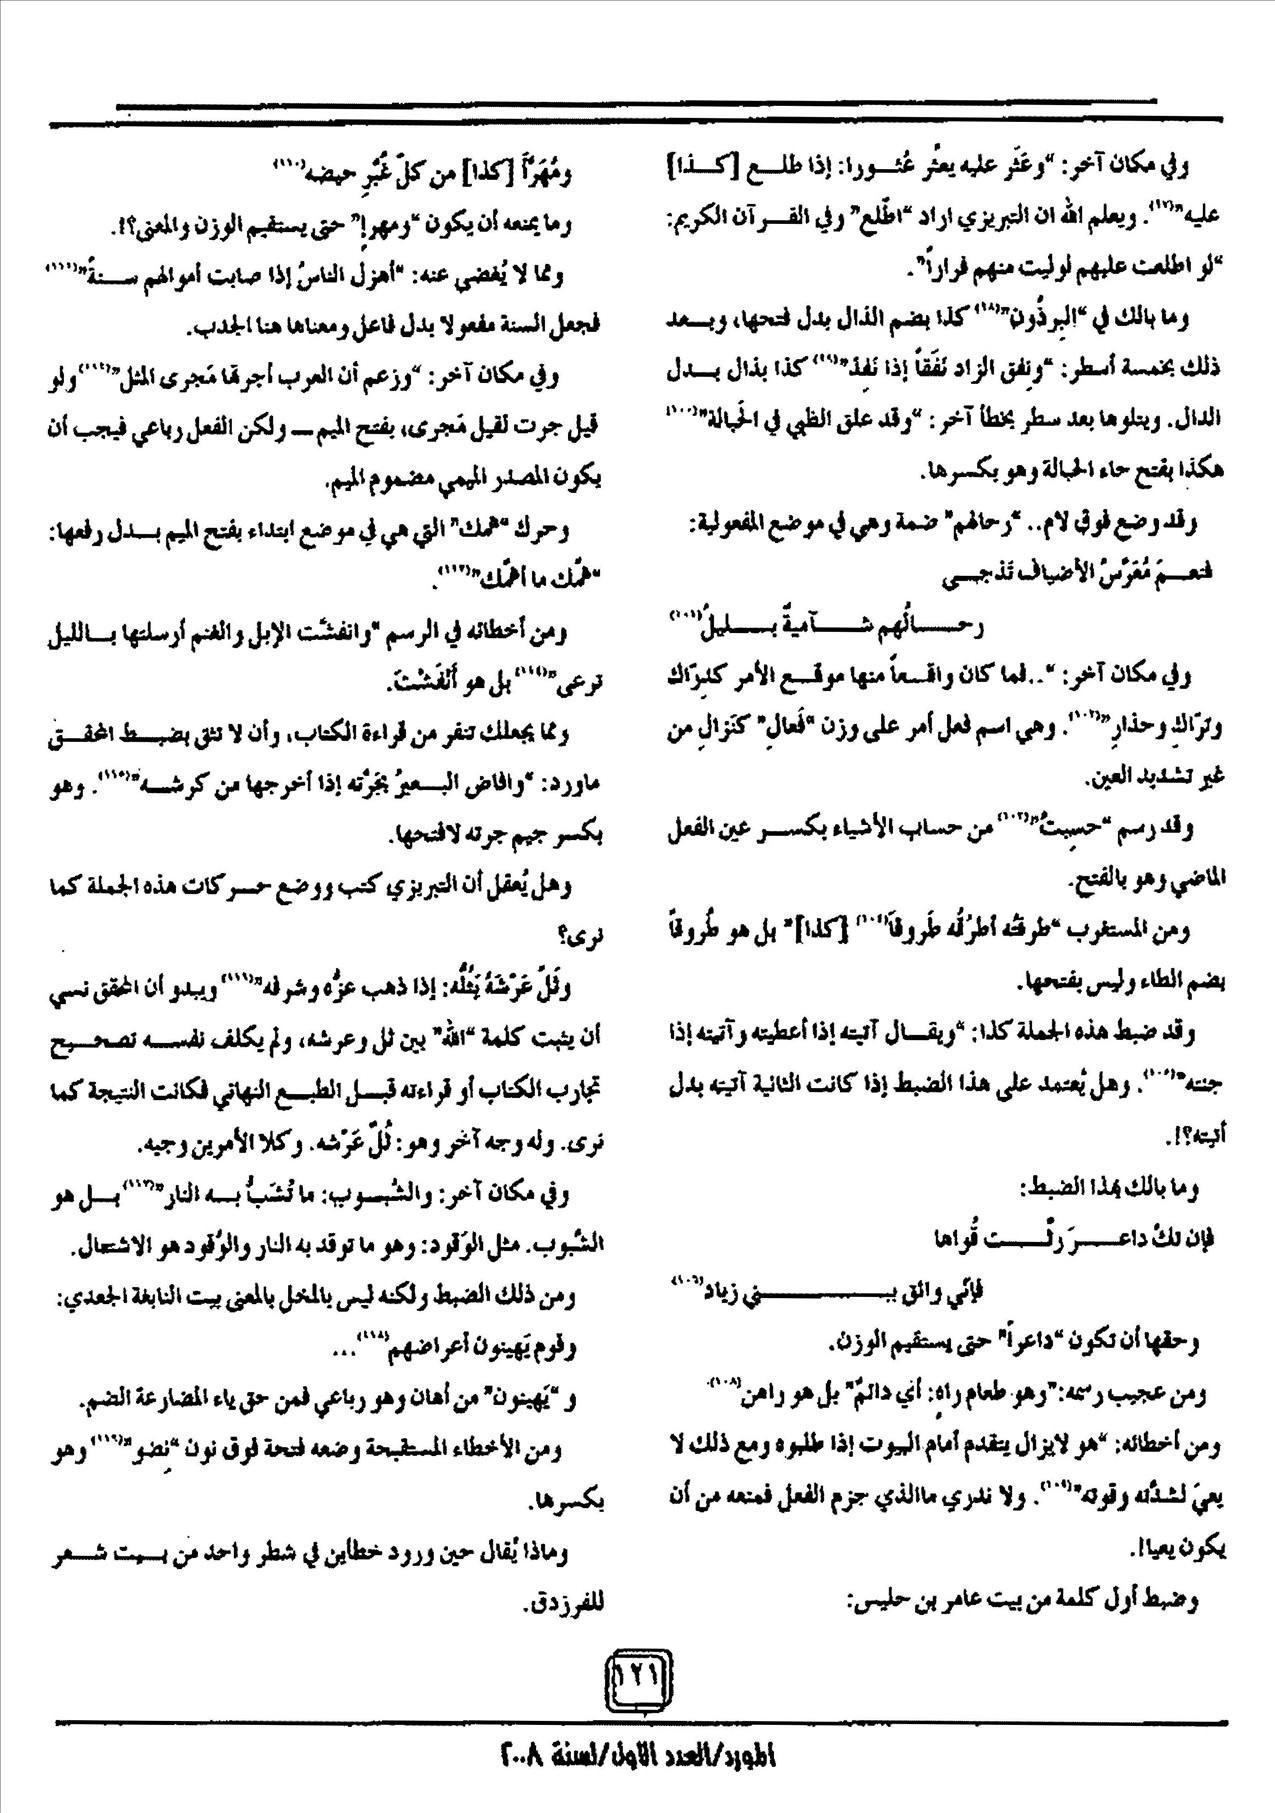 وفي مكان آخر: "وعَثَر عليه يعثُر عُثـورا: إذا طلـع [كـذا]
عليه"(٩٧). ويعلم الله ان التبريزي اراد "اطّلع" وفي القـرآن الكريم:
"لو اطلعت عليهم لوليت منهم فراراً".
وما بالك في "البِرذُون"(٩٨) كذا بضم الذال بدل فتحها، وبـعد
ذلك بخمسة أسطر: "ونفق الزاد نَفَقاً إذا نَفِذ"(٩٩) كذا بذال بـدل
الدال. ويتلوها بعد سطر بخطأ آخر: "وقد علق الظبي في الحَبالة"(١٠٠)
هكذا بفتح حاء الحبالة وهو بكسرها.
وقد وضع فوق لام.. "رحالهم" ضمة وهي في موضع المفعولية:
فنعـمَ مُعَرَّسُ الأضياف تَذجـى
رحــالُهم شــآميةٌ بــليلُ(١٠١)
وفي مكان آخر: "..فما كان واقـعاً منها موقـع الأمر كبرّاك
وترّاكِ وحذارِ"(١٠٢). وهي اسم فعل أمر على وزن "فَعالِ" كنَزالِ من
غير تشديد العين.
وقد رسم "حسِبتُ"(١٠٣) من حساب الأشياء بكسـر عين الفعل
الماضي وهو بالفتح.
ومن المستغرب "طرقتُه أطرُقُه طَروقاً(١٠٤) [كذا]" بل هو طُروقاً
بضم الطاء وليس بفتحها.
وقد ضبط هذه الجملة كذا: "ويقـال آتيته إذا أعطيته وآتيته إذا
جئته"(١٠٥). وهل يُعتمد على هذا الضبط إذا كانت الثانية آتيته بدل
أتيته؟!.
وما بالك بهذا الضبط:
فإن تكُ داعــرَ رثّــت قُواها
فإنّي واثق بــــني زياد(١٠٦)
وحقها أن تكون "داعراً" حتى يستقيم الوزن.
ومن عجيب رسمه:"وهو طعام راهٍ: أي دائمٌ" بل هو راهن(١٠٨).
ومن أخطائه: "هو لايزال يتقدم أمام البيوت إذا طلبوه ومع ذلك لا
يعيَ لشدّته وقوته"(١٠٩). ولا ندري ماالذي جزم الفعل فمنعه من أن
يكون يعيا!.
وضبط أول كلمة من بيت عامر بن حليس:
ومُهَرّاً [كذا] من كلّ غُبَّرِ حيضه(١١٠)
وما يمنعه أن يكون "ومهرإ" حتى يستقيم الوزن والمعنى؟!.
ومما لا يُغضي عنه: "أهزلُ الناسُ إذا صابت أموالهم سـنةً"(١١١)
فجعل السنة مفعولا بدل فاعل ومعناها هنا الجدب.
وفي مكان آخر: "وزعم أن العرب أجرتها مَجرى المثل"(١١٢) ولو
قيل جرت لقيل مَجرى، بفتح الميم ــ ولكن الفعل رباعي فيجب أن
يكون المصدر الميمي مضموم الميم.
وحرك "همك" التي هي في موضع ابتداء بفتح الميم بـدل رفعها:
"همَّك ما أهمّك"(١١٣).
ومن أخطائه في الرسم "وانفشَت الإبل والغنم أرسلتها بـالليل
ترعى"(١١٤) بل هو أَنْفَشْتَ.
ومما يجعلك تنفر من قراءة الكتاب، وأن لا تثق بضبـط المحقـق
ماورد: "وافاض البـعيرُ بجَرّته إذا أخرجها من كرشـه"(١١٥). وهو
بكسر جيم جرته لافتحها.
وهل يُعقل أن التبريزي كتب ووضع حـركات هذه الجملة كما
نرى؟
وثَلَّ عَرْشَهُ يَثُلُّه: إذا ذهب عزُّه وشرفه"(١١٦) ويبدو أن المحقق نسي
أن يثبت كلمة "اللهُ" بين ثل وعرشه، ولم يكلف نفسـه تصحيـح
تجارب الكتاب أو قراءته قبـل الطبـع النهائي فكانت النتيجة كما
نرى. وله وجه آخر وهو: ثُلّ عَرْشه. وكلا الأمرين وجيه.
وفي مكان آخر: والشُبـوب: ما تُشَبُّ بـه النار"(١١٧) بـل هو
الشَّبوب. مثل الوَقود: وهو ما توقد به النار والوُقود هو الاشتعال.
ومن ذلك الضبط ولكنه ليس بالمخل بالمعنى بيت النابغة الجعدي:
وقوم يَهينون أعراضهم(١١٨)...
و "يَهينون" من أهان وهو رباعي فمن حق ياء المضارعة الضم.
ومن الأخطاء المستقبحة وضعه فتحة فوق نون "نِضو"(١١٩) وهو
بكسرها.
وماذا يُقال حين ورود خطأين في شطر واحد من بـيت شـعر
للفرزدق.
١٢١
المورد/العدد الاول/لسنة ٢٠٠٨